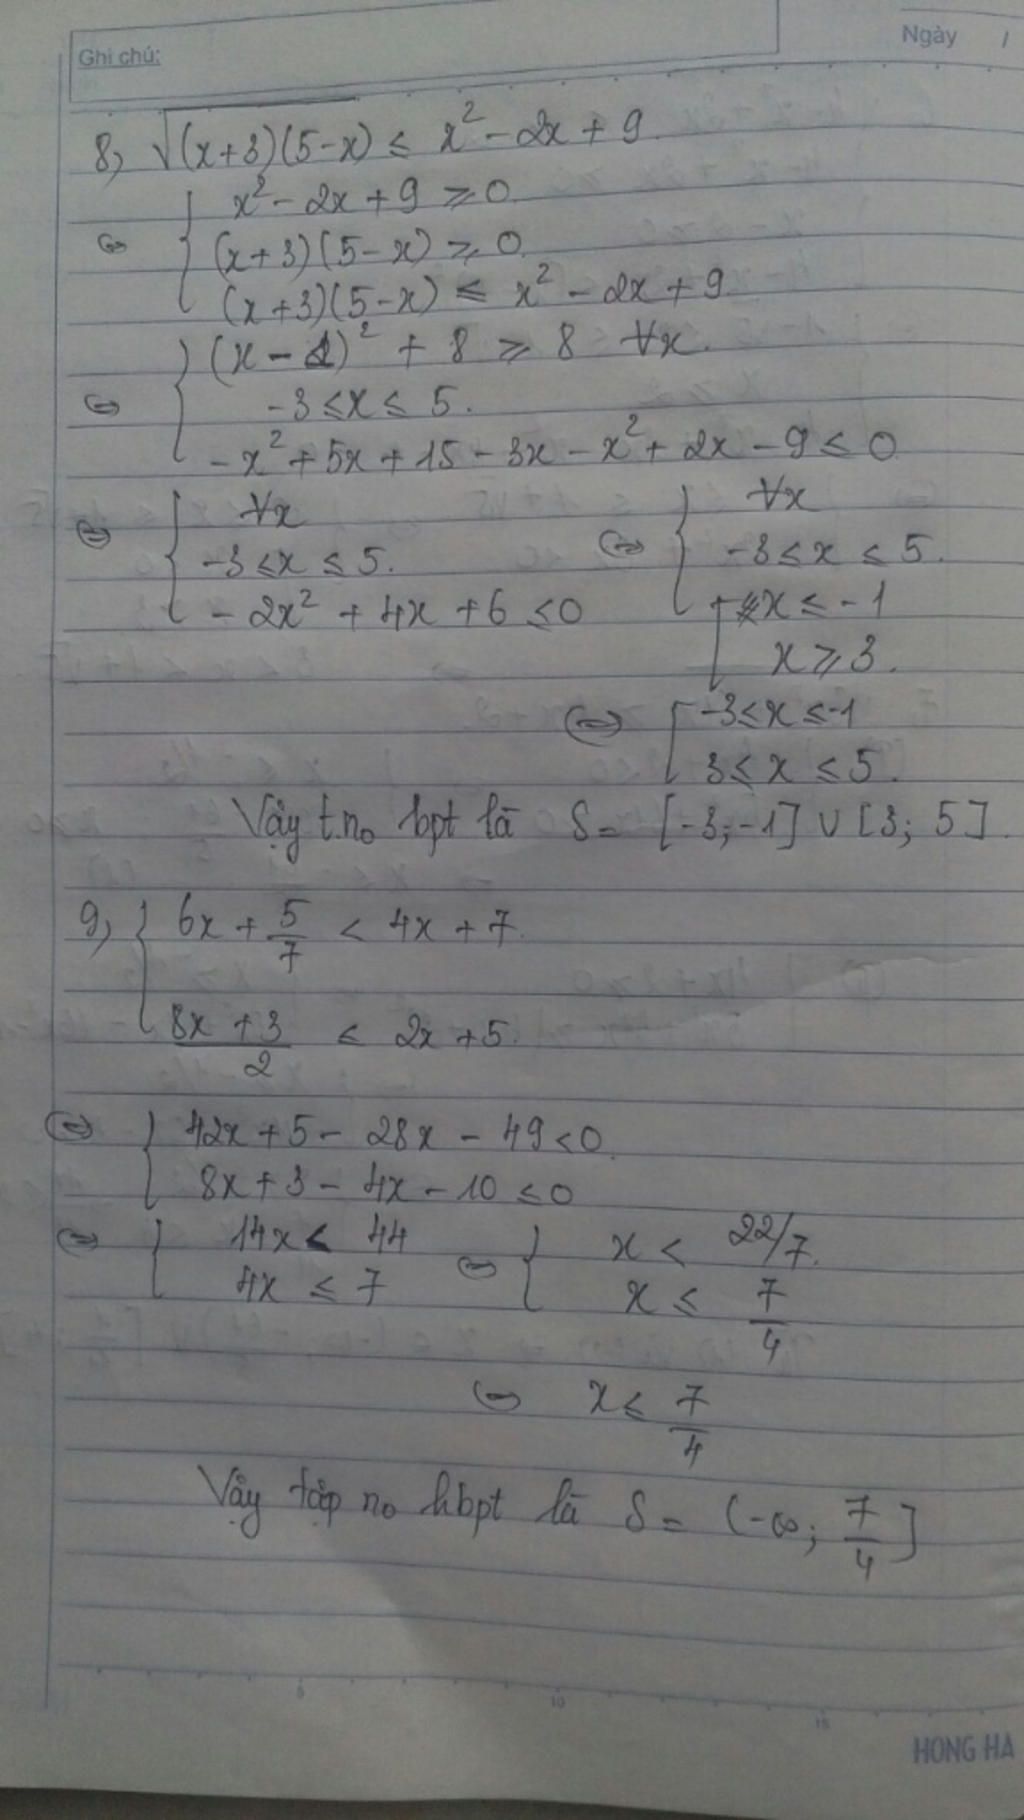 Ghi chú:
Ngày /
8, √(x+3)(5-x) ≤ x² - 2x + 9.
⇔ { x² - 2x + 9 ⩾ 0.
(x+3)(5-x) ⩾ 0.
(x+3)(5-x) ≤ x² - 2x + 9.
⇔ { (x-1)² + 8 ⩾ 8 ∀x.
-3 ≤ x ≤ 5.
-x² + 5x + 15 - 3x - x² + 2x - 9 ≤ 0
⇔ { ∀x ⇔ { ∀x
-3 ≤ x ≤ 5. -3 ≤ x ≤ 5.
- 2x² + 4x + 6 ≤ 0 [ x ≤ -1
x ⩾ 3.
⇔ [ -3 ≤ x ≤ -1
3 ≤ x ≤ 5.
Vậy t.no bpt là S = [-3;-1] ∪ [3; 5].
9, { 6x + 5/7 < 4x + 7.
(8x + 3)/2 ≤ 2x + 5.
⇔ { 42x + 5 - 28x - 49 < 0.
8x + 3 - 4x - 10 ≤ 0
⇔ { 14x < 44 ⇔ { x < 22/7.
4x ≤ 7 x ≤ 7/4
⇔ x ≤ 7/4
Vậy tập no hbpt là S = (-∞; 7/4]
5 10 15
HONG HA